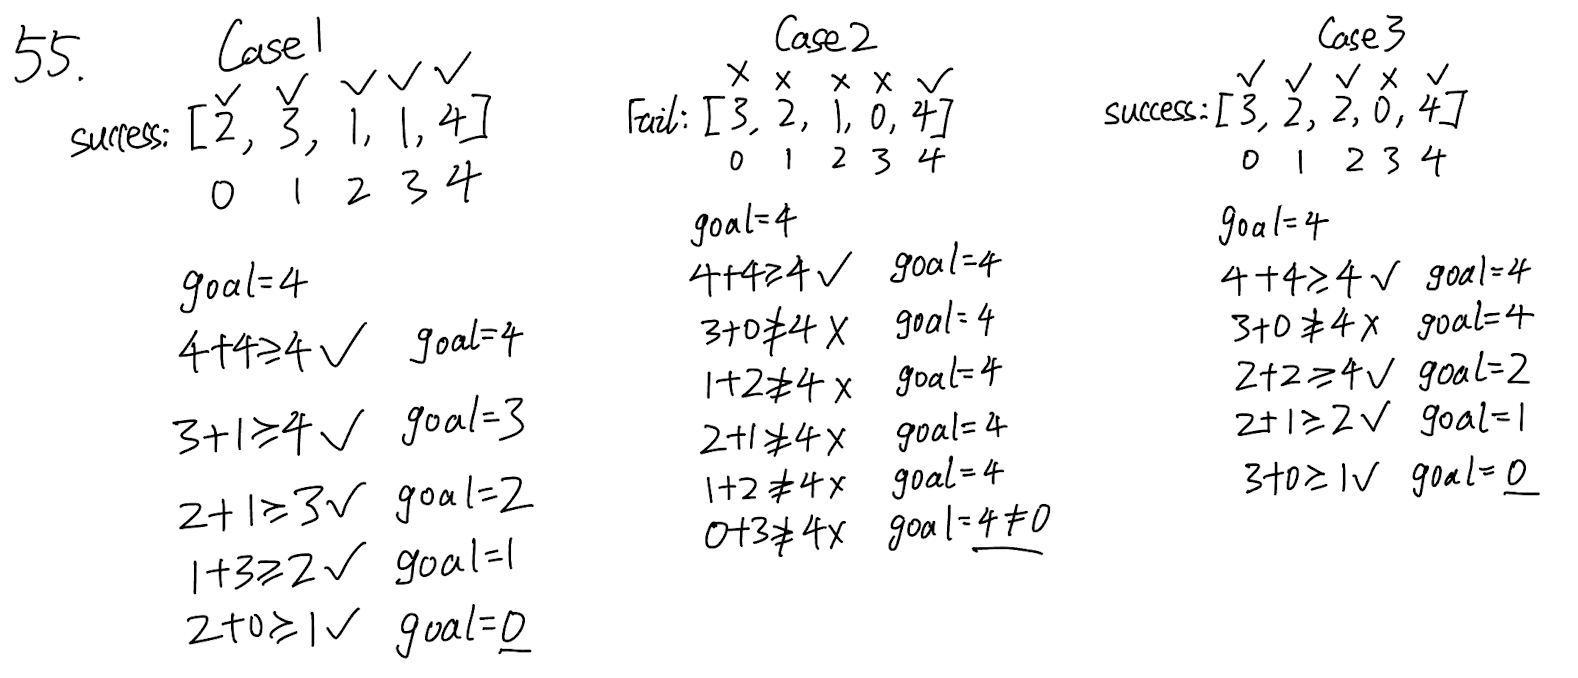 55.
Case 1
✓ ✓ ✓ ✓ ✓
success: [2, 3, 1, 1, 4]
0 1 2 3 4
goal=4
4+4≥4 ✓ goal=4
3+1≥4 ✓ goal=3
2+1≥3 ✓ goal=2
1+3≥2 ✓ goal=1
2+0≥1 ✓ goal=0
Case 2
x x x x ✓
Fail: [3, 2, 1, 0, 4]
0 1 2 3 4
goal=4
4+4≥4 ✓ goal=4
3+0≱4 x goal=4
1+2≱4 x goal=4
2+1≱4 x goal=4
1+2≱4 x goal=4
0+3≱4 x goal=4≠0
Case 3
✓ ✓ ✓ x ✓
success: [3, 2, 2, 0, 4]
0 1 2 3 4
goal=4
4+4≥4 ✓ goal=4
3+0≱4 x goal=4
2+2≥4 ✓ goal=2
2+1≥2 ✓ goal=1
3+0≥1 ✓ goal=0